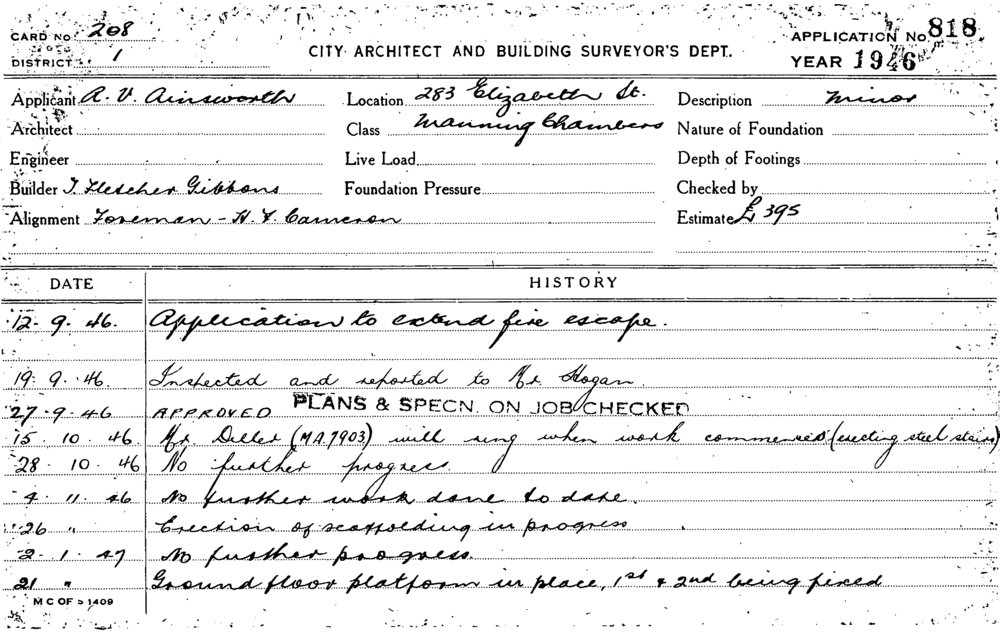 CARD No 208
DISTRICT 1
CITY ARCHITECT AND BUILDING SURVEYOR'S DEPT.
APPLICATION No 818
YEAR 1946
Applicant A. V. Ainsworth Location 283 Elizabeth St. Description Minor
Architect Class Manning Chambers Nature of Foundation
Engineer Live Load Depth of Footings
Builder T. Fletcher Gibbons Foundation Pressure Checked by
Alignment Foreman - H. Cameron Estimate £ 395
DATE HISTORY
12. 9. 46. Application to extend fire escape.
19. 9. 46. Inspected and reported to Mr. Hogan.
27. 9. 46 APPROVED PLANS & SPECN. ON JOB CHECKED
15. 10. 46 Mr. Deller (MA7903) will ring when work commences (erecting steel stairs)
28. 10. 46 No further progress.
4. 11. 46 No further work done to date.
26 " Erection of scaffolding in progress
2. 1. 47 No further progress.
21 " Ground floor platform in place, 1st & 2nd being fixed
M C OF S 1409